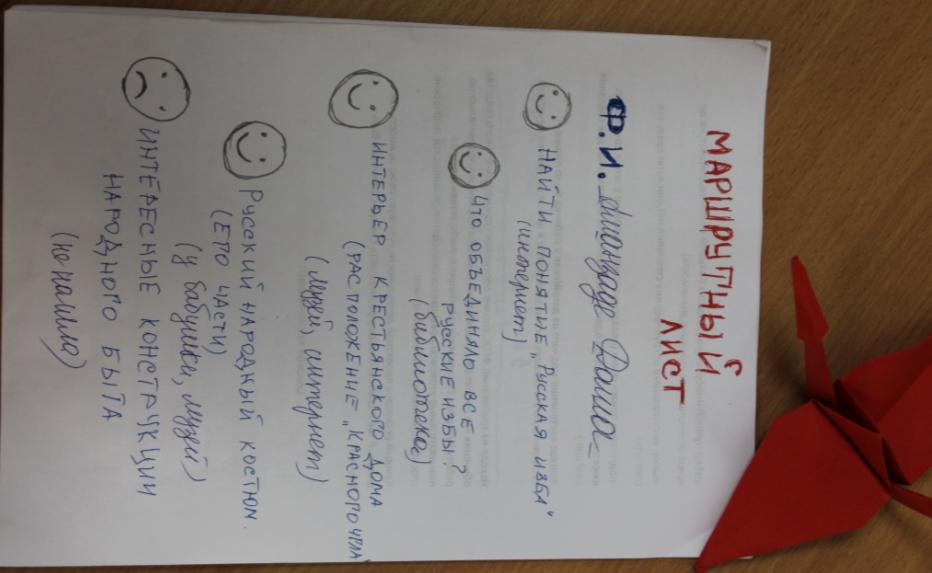 МАРШРУТНЫЙ
ЛИСТ
Ф.И. Даша
НАЙТИ ПОНЯТИЕ „РУССКАЯ ИЗБА"
(интернет)
ЧТО ОБЪЕДИНЯЛО ВСЕ
РУССКИЕ ИЗБЫ?
(библиотека)
ИНТЕРЬЕР КРЕСТЬЯНСКОГО ДОМА
(РАСПОЛОЖЕНИЕ „КРАСНОГО УГЛА"
(музей, интернет)
РУССКИЙ НАРОДНЫЙ КОСТЮМ.
(ЕГО ЧАСТИ)
(у бабушки, музей)
ИНТЕРЕСНЫЕ КОНСТРУКЦИИ
НАРОДНОГО БЫТА
(не нашла)